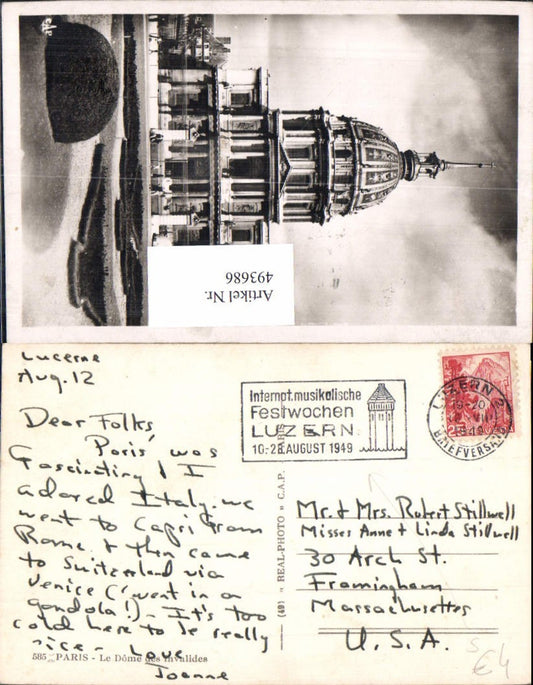 Artikel Nr.
493686
Lucerne
Aug. 12
Dear Folks
Paris was
fascinating! I
adored Italy. we
went to Capri from
Rome & then came
to Switzerland via
Venice (went in a
gondola!) - It's too
cold here to be really
nice - Love
Joanne
585 PARIS - Le Dôme des Invalides
(49) » REAL-PHOTO « C.A.P.
Internat.musikalische
Festwochen
LUZERN
10-28.AUGUST 1949
LUZERN 2
BRIEFVERSAND
Mr. & Mrs. Robert Stillwell
Misses Anne & Linda Stillwell
30 Arch St.
Framingham
Massachusettes
U.S.A.
€4